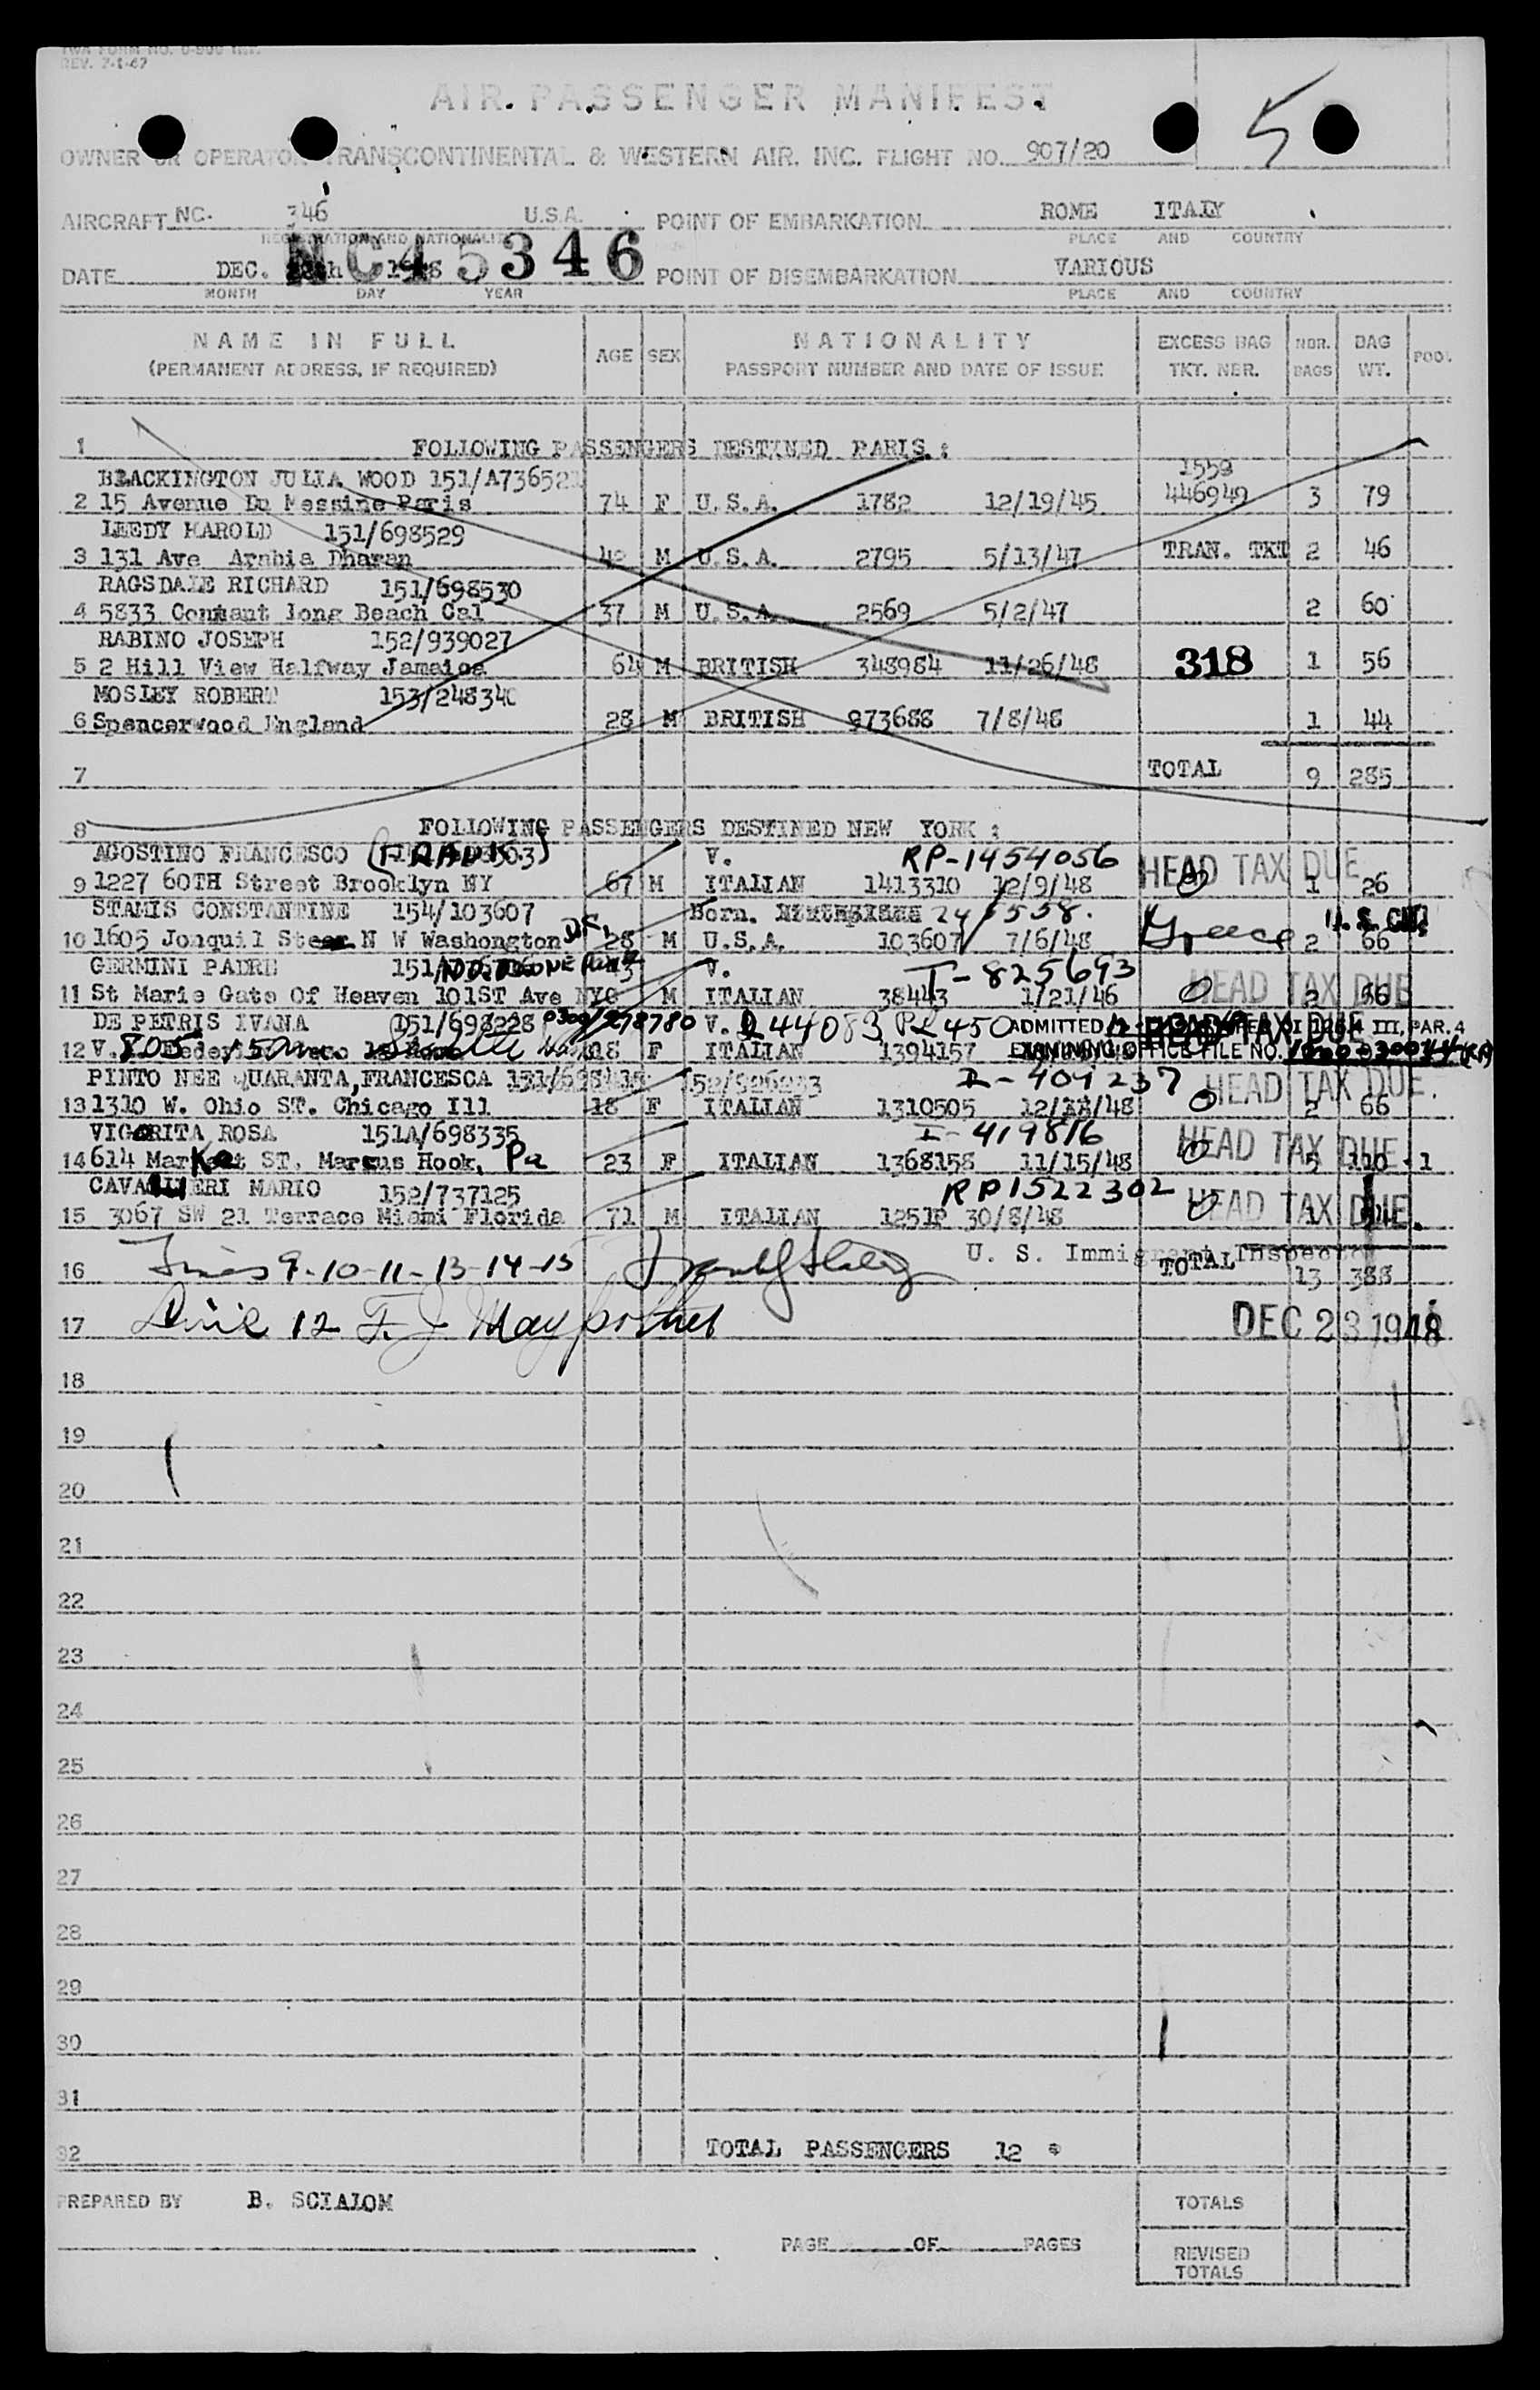 REV. 7-1-47
AIR PASSENGER MANIFEST
5
OWNER OR OPERATOR TRANSCONTINENTAL & WESTERN AIR, INC. FLIGHT NO. 907/20
AIRCRAFT NC. 346 U.S.A. POINT OF EMBARKATION ROME ITALY
REGISTRATION AND NATIONALITY PLACE AND COUNTRY
NC45346
DATE DEC. 1948 POINT OF DISEMBARKATION VARIOUS
MONTH DAY YEAR PLACE AND COUNTRY
NAME IN FULL AGE SEX NATIONALITY EXCESS BAG NBR. BAG POOL
(PERMANENT ADDRESS, IF REQUIRED) PASSPORT NUMBER AND DATE OF ISSUE TKT. NBR. BAGS WT.
1 FOLLOWING PASSENGERS DESTINED PARIS :
BLACKINGTON JULIA WOOD 151/A736521 1559
2 15 Avenue De Messine Paris 74 F U.S.A. 1782 12/19/45 446949 3 79
LEEDY HAROLD 151/698529
3 131 Ave Arabia Dharan 42 M U.S.A. 2795 5/13/47 TRAN. TKT 2 46
RAGSDALE RICHARD 151/698530
4 5833 Connant Long Beach Cal 37 M U.S.A. 2569 5/2/47 2 60
RABINO JOSEPH 152/939027
5 2 Hill View Halfway Jamaica 64 M BRITISH 348984 11/26/48 318 1 56
MOSLEY ROBERT 153/248340
6 Spencerwood England 28 M BRITISH 973688 7/8/48 1 44
7 TOTAL 9 285
8 FOLLOWING PASSENGERS DESTINED NEW YORK :
AGOSTINO FRANCESCO (FRANK) V. RP-1454056 HEAD TAX DUE
9 1227 60TH Street Brooklyn NY 67 M ITALIAN 1413310 12/9/48 1 26
STAMIS CONSTANTINE 154/103607 Born. Greece U.S. Cit.
10 1605 Jonquil N W Washongton DC. 28 M U.S.A. 103607 7/6/48 2 66
GERMINI PADRE V. I-825693 HEAD TAX DUE
11 St Marie Gate Of Heaven 101ST Ave NYC M ITALIAN 38443 1/21/46 2
DE PETRIS IVANA 151/698228 V. ADMITTED III, PAR. 4
12 805 18 F ITALIAN 1394157 EXAMINING OFFICE FILE NO.
PINTO NEE QUARANTA, FRANCESCA I-409237 HEAD TAX DUE.
13 1310 W. Ohio ST. Chicago Ill 18 F ITALIAN 1310505 2 66
VIGORITA ROSA 151A/698335 I-419816 HEAD TAX DUE
14 614 Market ST. Marcus Hook, Pa 23 F ITALIAN 1368158 11/15/48 5 110 - 1
CAVALIERI MARIO 152/737125 RP1522302 HEAD TAX DUE.
15 3067 SW 21 Terrace Miami Florida 71 M ITALIAN 1251P 30/8/48
U. S. Immigrant Inspector
16 Lines 9-10-11-13-14-15 TOTAL 13 388
17 Line 12 F. J. DEC 23 1948
18
19
20
21
22
23
24
25
26
27
28
29
30
31
32 TOTAL PASSENGERS 12
PREPARED BY B. SCIALOM TOTALS
PAGE OF PAGES
REVISED
TOTALS